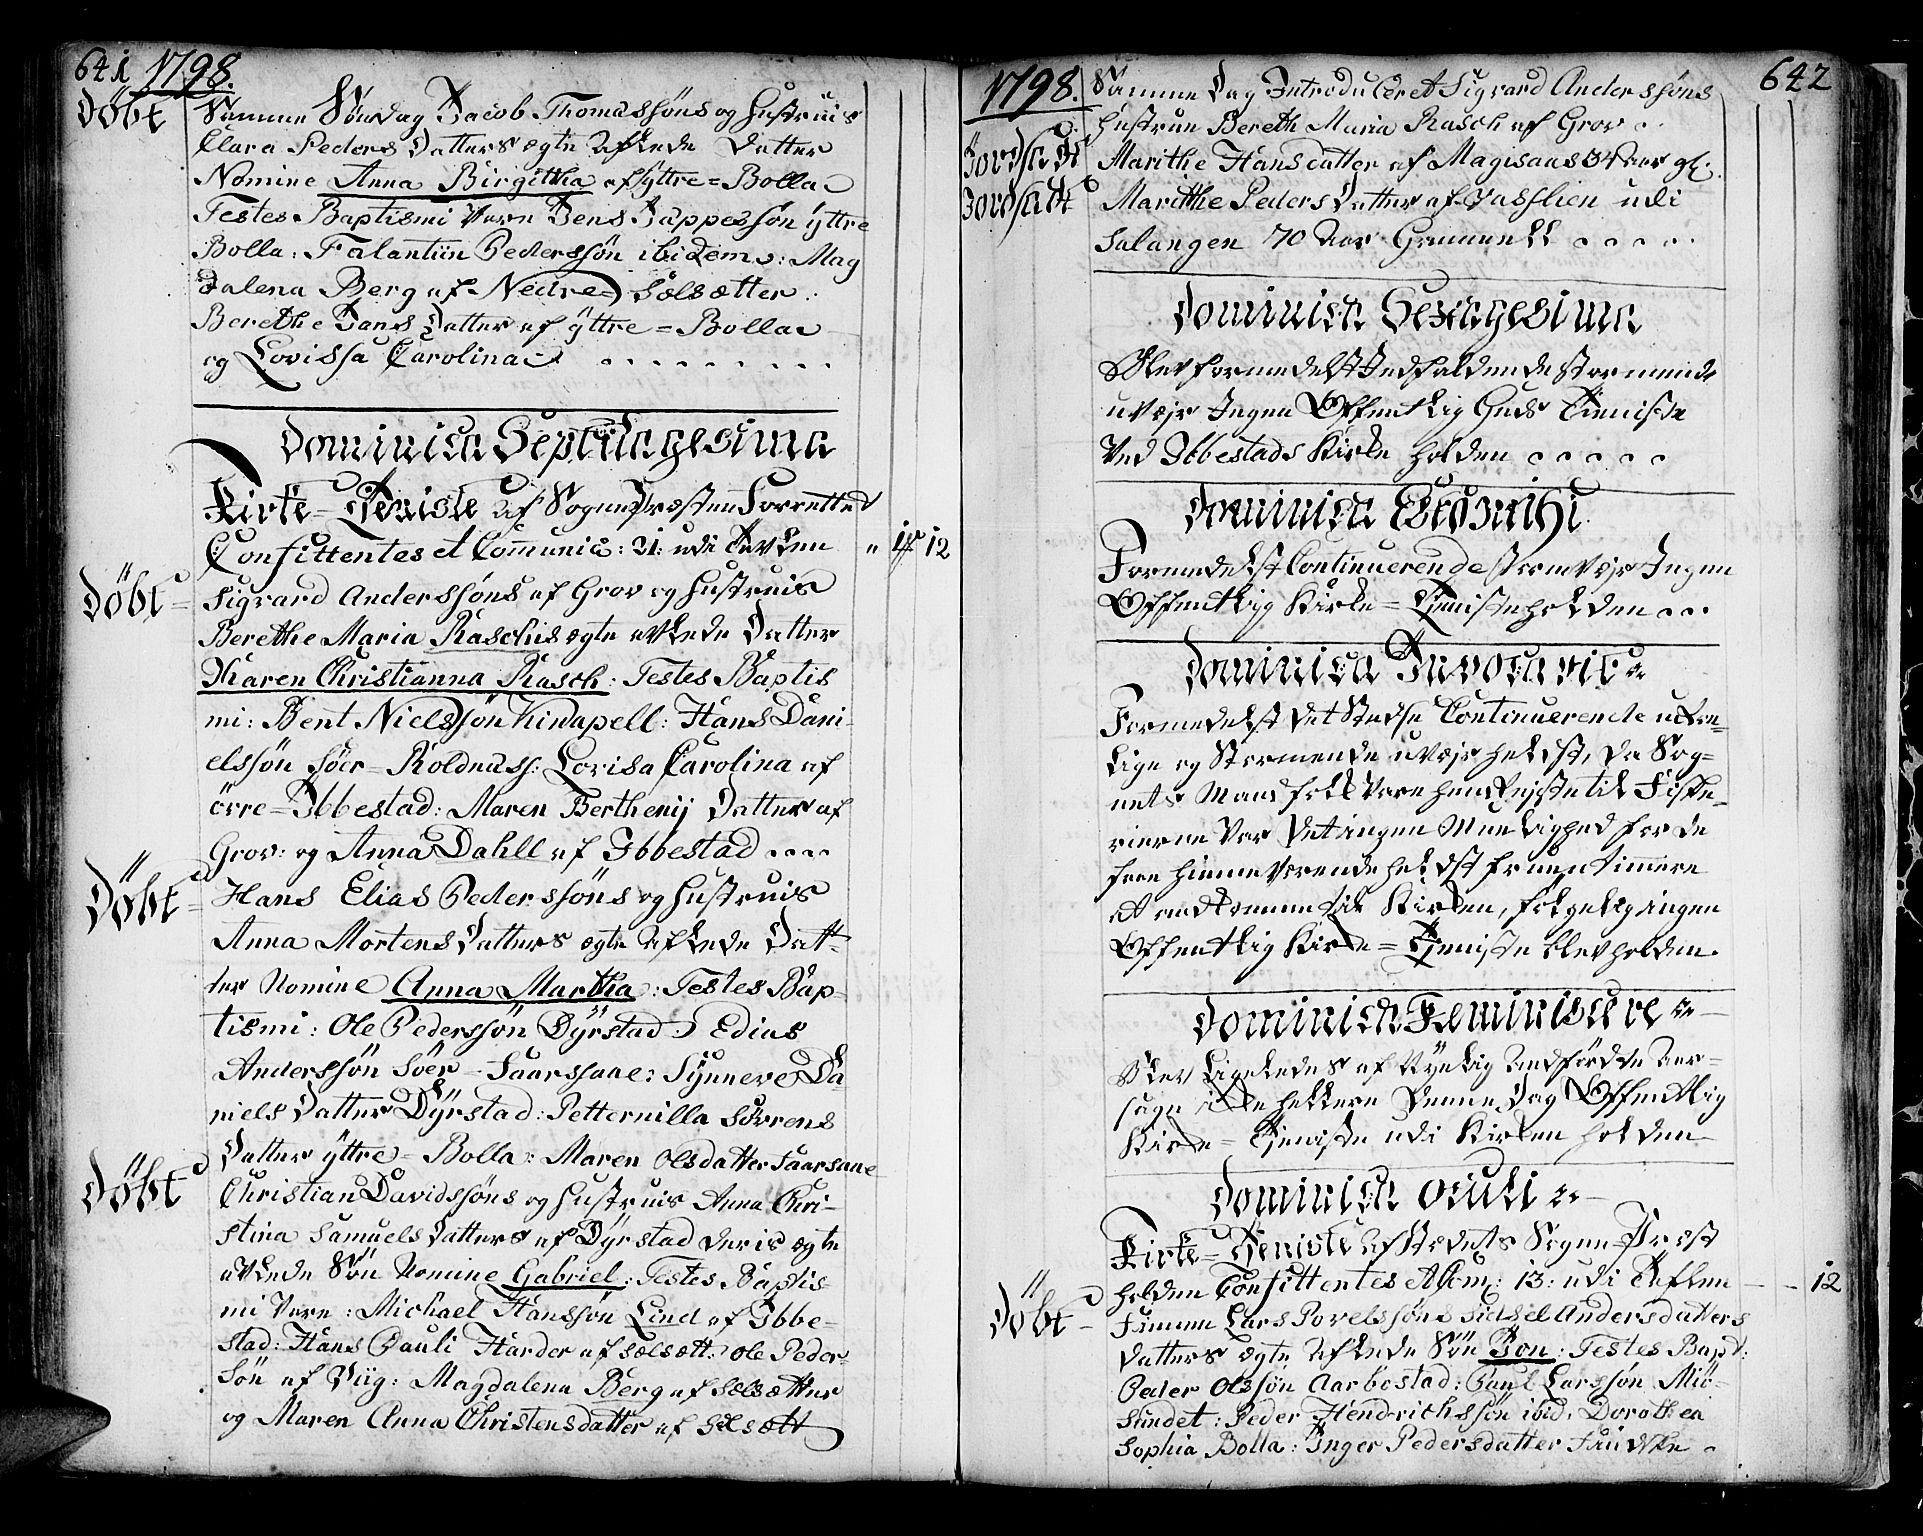 641 1798.
Döbt Samme Söndag Jacob Thomassöns og Hustruis
Clara Peders Datters ægte Aflede Datter
Nomine Anna Birgitha af yttre = Bolla
Testes Baptismi Vare Jens Jappessön yttre
Bolla: Falantiin Pederssön ibidem: Mag
dalena Berg af Nedre = Sælsætter.
Berethe Jans Datter af yttre = Bolla
og Lovissa Carolina
Dominica Septuagesima
Kirke = Tieniste af Sogne Præsten Forretted
Confittentes et Communic: 21: udi Tavlen " 1 12
Döbt = Sigvard Anderssöns af Grov og Hustruis
Berethe Maria Raschis ægte avlede Datter
Karen Christianna Rasch: Testes Baptis
mi: Bent Nielssön Kindapell: Hans Dani-
elssön Söer = Roldnass: Lovisa Carolina af
örre = Ibbestad: Maren Berthenij Datter af
Grov: og Anna Dahll af Ibbestad
Döbt = Hans Elias Pederssöns og Hustruis
Anna Mortens Datters ægte Aflede Dat-
ter Nomine Anna Martha: Testes Bap-
tismi: Ole Pederssön Dyrstad: Edias
Anderssön Söer = Faarssane: Synneve Da
niels Datter Dyrstad: Petternilla Sörrens
Datter yttre = Bolla: Maren Olsdatter Faarsane
Döbt Christian Davidssöns og Hustruis Anna Chri-
stina Samuels Datters af Dyrstad deris ægte
avlede Sön Nomine Gabriel: Testes Baptis
mi Vare: Michael Hanssön Lind af Ibbe-
stad: Hans Pauli Harder af Sælsætt: Ole Peder-
Sön af Viig: Magdalena Berg af Sælsætter
og Maren Anna Christensdatter af Sælsætt
1798. 642
Samme Dag Introduceret Sigvard Anderssöns
Hustrue Bereth Maria Rasch af Grov
Jordfædt Marithe Hansdatter af Magisaas 34 Aar gl:
Jordfædt Marithe Peders Datter af Vasslien udi
Salangen 70 Aar Gammell
Dominica Sexagesima
Blev formedelst Indfaldende Stormende
uvejr Ingen Offentlig Guds Tieniste
Ved Ibbestads Kirke holden
Dominica Estomihi
Formedelst Continuerende Stormvejr Ingen
Offentlig Kirke = Tieniste holden
Dominica Invocavit
Formedelst det Stedse Continuerende
lige og Stormende uvejr helst, da Sog-
nets Mandfolk Vare henrejste til Fiske-
rierne Var det ingen Muelighed for de
faae hiemmeVærende helst fruentimmere
at andkomme til Kirken, følgelig ingen
Offentlig Kirke = Tieniste blev holden.
Dominica Reminiscere
Blev Ligeledes af Nyelig Andfördte Aar-
sage ikke hellere denne Dag Offentlig
Kirke = Tieniste udi Kirken holden
Dominica Oculi
Kirke = Tieniste af Stedets Sogne Præst
holden Confittentes et Com: 13: udi Taflen 12
Döbt = Samme Lars Povelssöns Sidsel Andersdatters
Datters ægte Aflede Sön Jon: Testes Bapt:
Peder Olssön Aarbostad: Paul Larssön Miö-
sundet: Peder Hendrichssön ibid: Dorothea
Sophia Bolla: Inger Pedersdatter